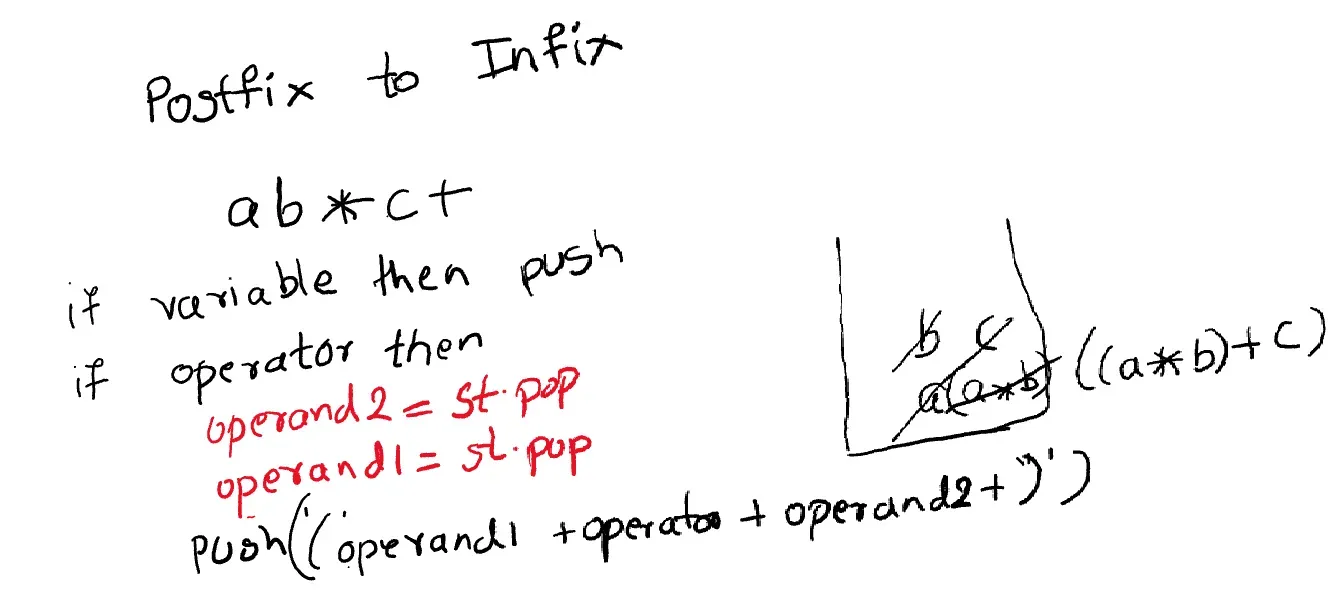 Postfix to Infix
ab*c+
if variable then push
if operator then
operand2 = st.pop
operand1 = st.pop
push('(' operand1 + operator + operand2 + ')')
b c
a (a*b) ((a*b)+c)